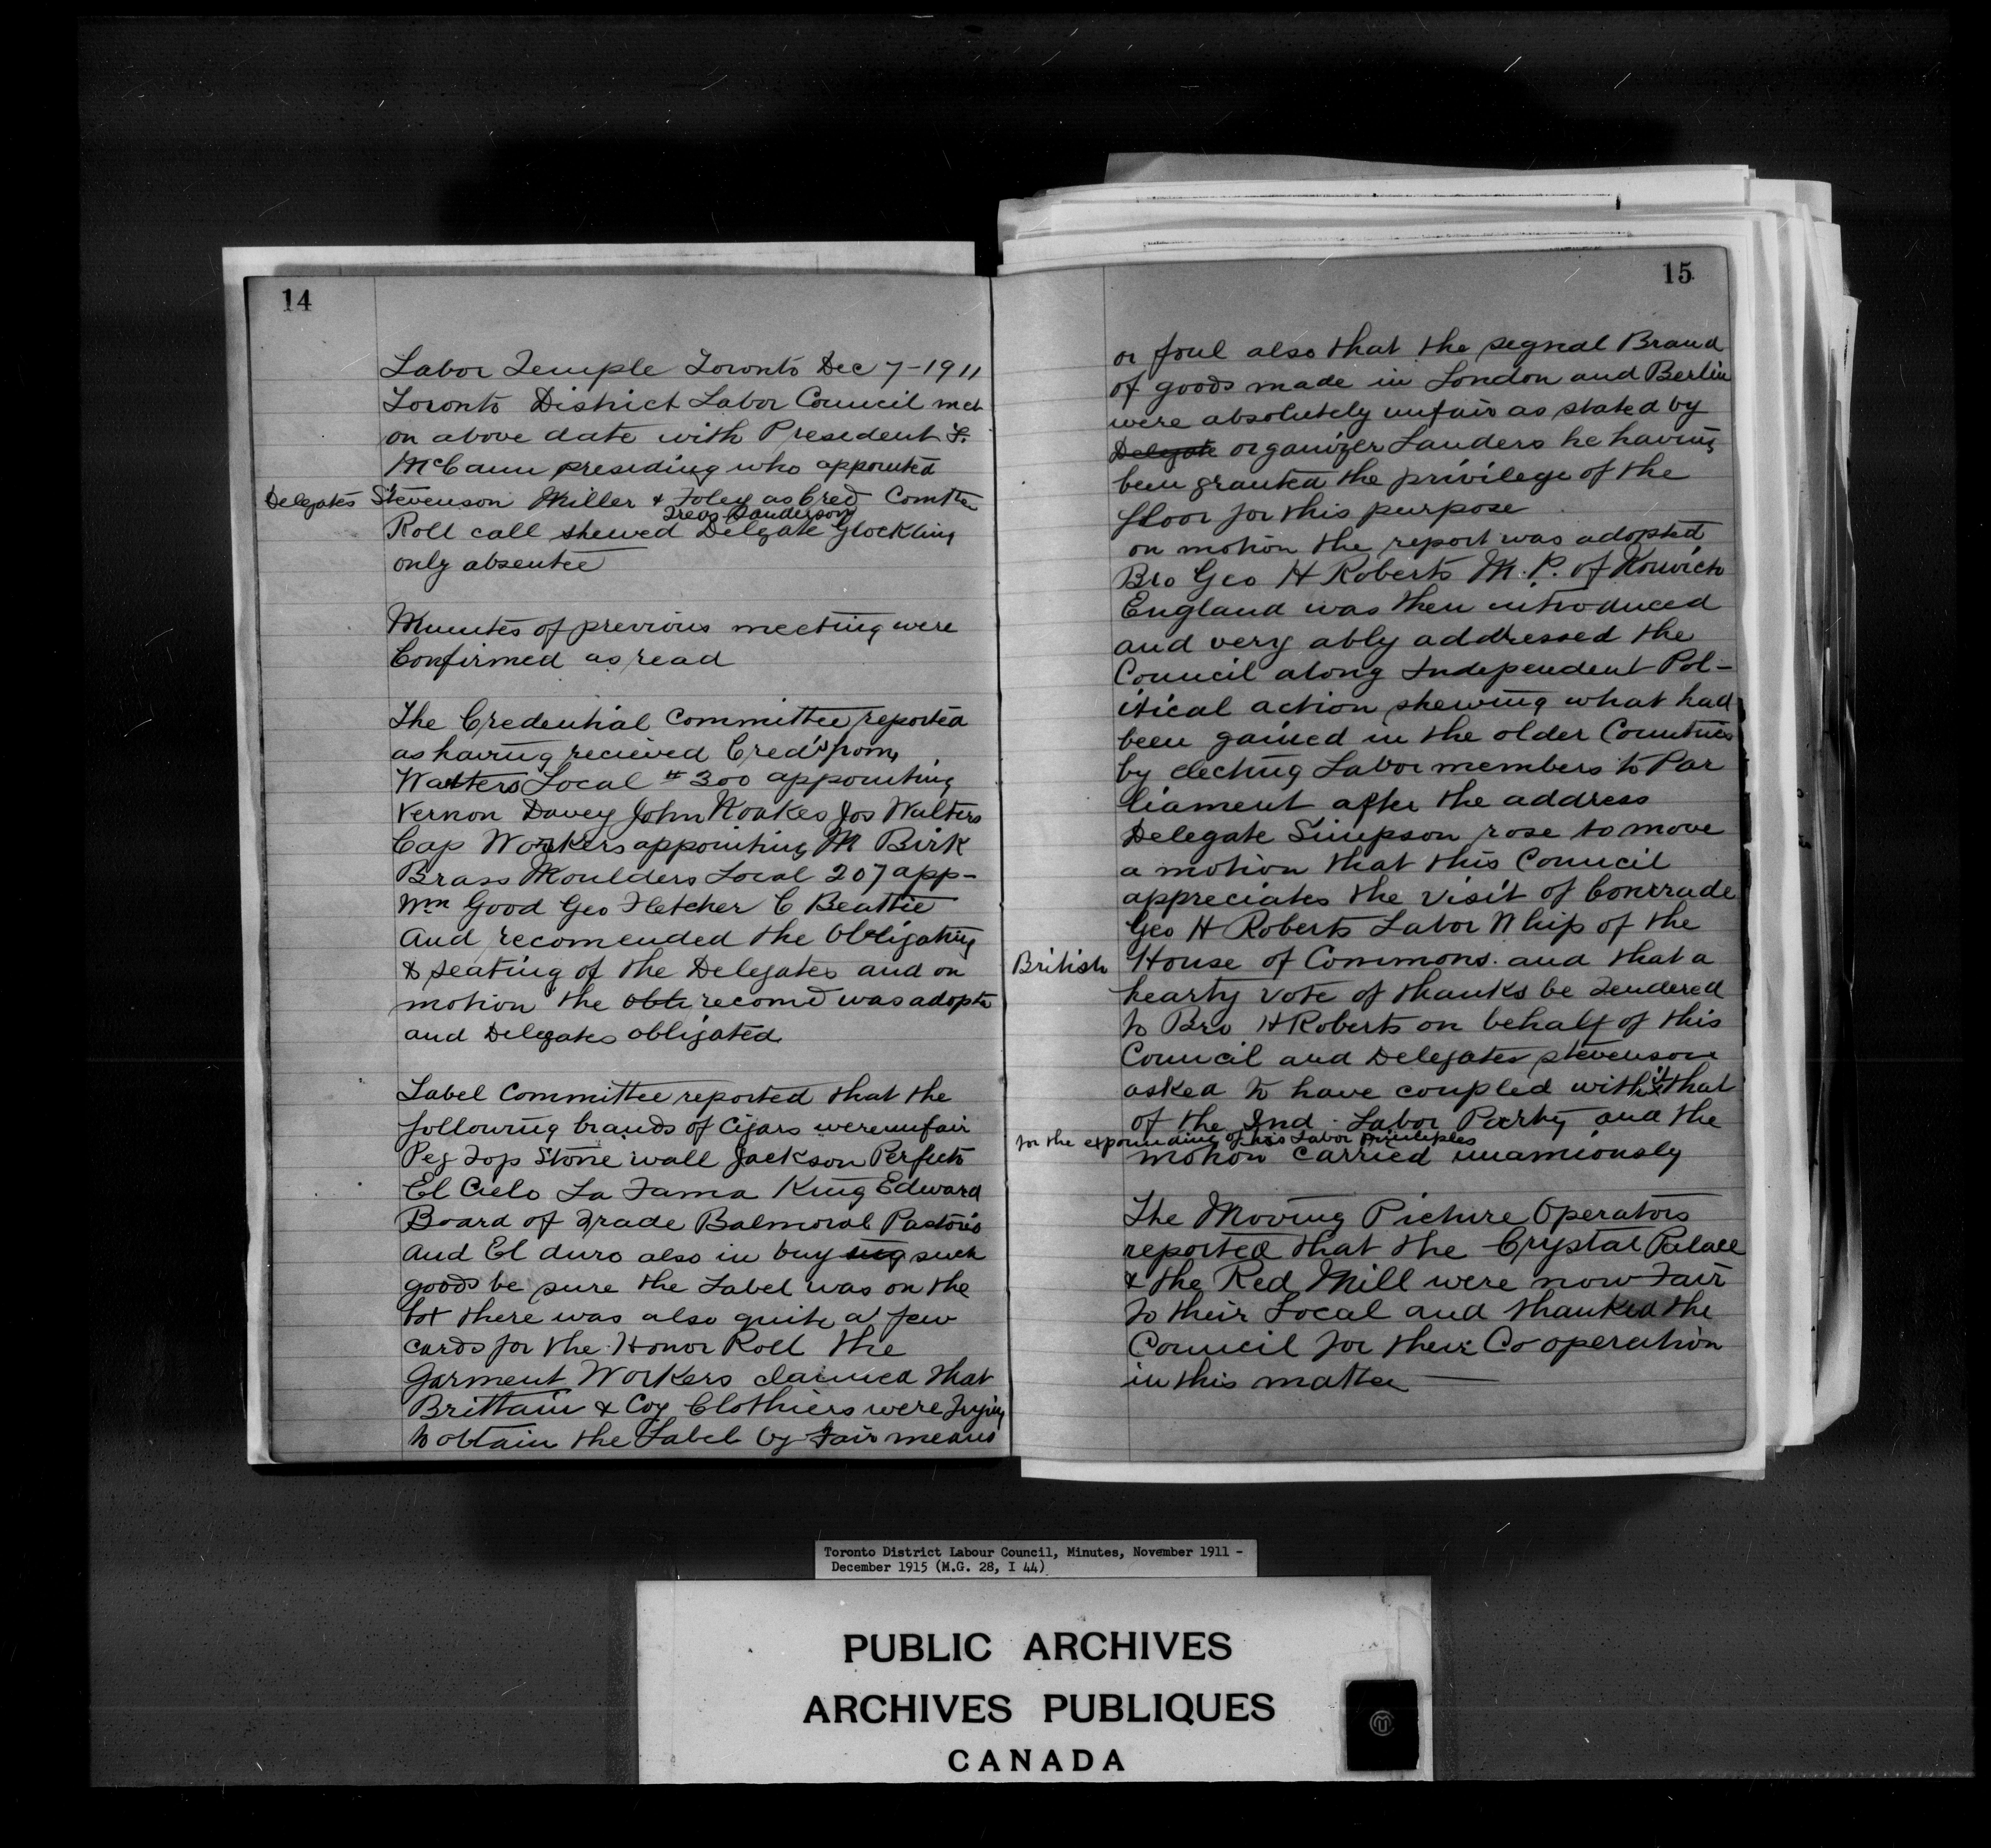 14
Labor Temple Toronto Dec 7-1911
Toronto District Labor Council met
on above date with President F.
McCann presiding who appointed
Delegates Stevenson Miller & Foley as Cred Comtte
Treas Sanderson
Roll call shewed Delgate Glockling
only absentee
Minutes of previous meeting were
Confirmed as read
The Credential Committee reported
as having recieved Cred's from
Waiters Local # 300 appointing
Vernon Davey John Noakes Jos Walters
Cap Workers appointing M Birk
Brass Moulders Local 207 app-
Wm Good Geo Fletcher C Beattie
And recomended the Obligating
& seating of the Delegates and on
motion the recomd was adopte
and Delegates obligated
Label Committee reported that the
following brands of Cigars were unfair
Peg Top Stone wall Jackson Perfecto
El Cielo La Fama King Edward
Board of Trade Balmoral Pastoris
And El duro also in buy ing such
goods be sure the Label was on the
bot there was also quite a few
cards for the Honor Roll the
Garment Workers claimed that
Brittain & Coy Clothiers were trying
to obtain the Label by Fair means
15
or foul also that the segnal Brand
of goods made in London and Berlin
were absolutely unfair as stated by
Delegate organizer Landers he having
been granted the privilege of the
floor for this purpose
on motion the report was adopted
Bro Geo H Roberts M.P. of Norwich
England was then introduced
and very ably addressed the
Council along Independent Pol-
itical action shewing what had
been gained in the older Countries
by electing Labor members to Par
liament after the address
Delegate Simpson rose to move
a motion that this Council
appreciates the visit of Comrade
Geo H Roberts Labor Whip of the
British House of Commons. and that a
hearty vote of thanks be Tendered
to Bro H Roberts on behalf of this
Council and Delegates stevenson
asked to have coupled with it that
of the Ind. Labor Party and the
for the expounding of his Labor Principles
motion carried unamiously
The Moving Picture Operators
reported that the Crystal Palace
& the Red Mill were now Fair
to their Local and thanked the
Council for their Co operation
in this matter
Toronto District Labour Council, Minutes, November 1911 -
December 1915 (M.G. 28, I 44)
PUBLIC ARCHIVES
ARCHIVES PUBLIQUES
CANADA